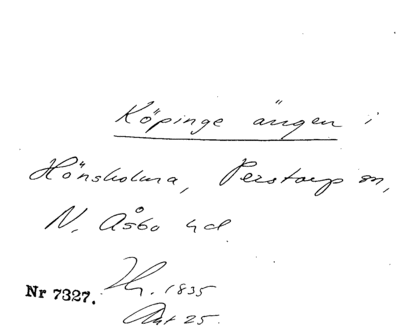 Köpinge ängen i
Hönsholma, Perstorp sn,
N. Åsbo hd
Nr 7327. 1835
Akt 25.